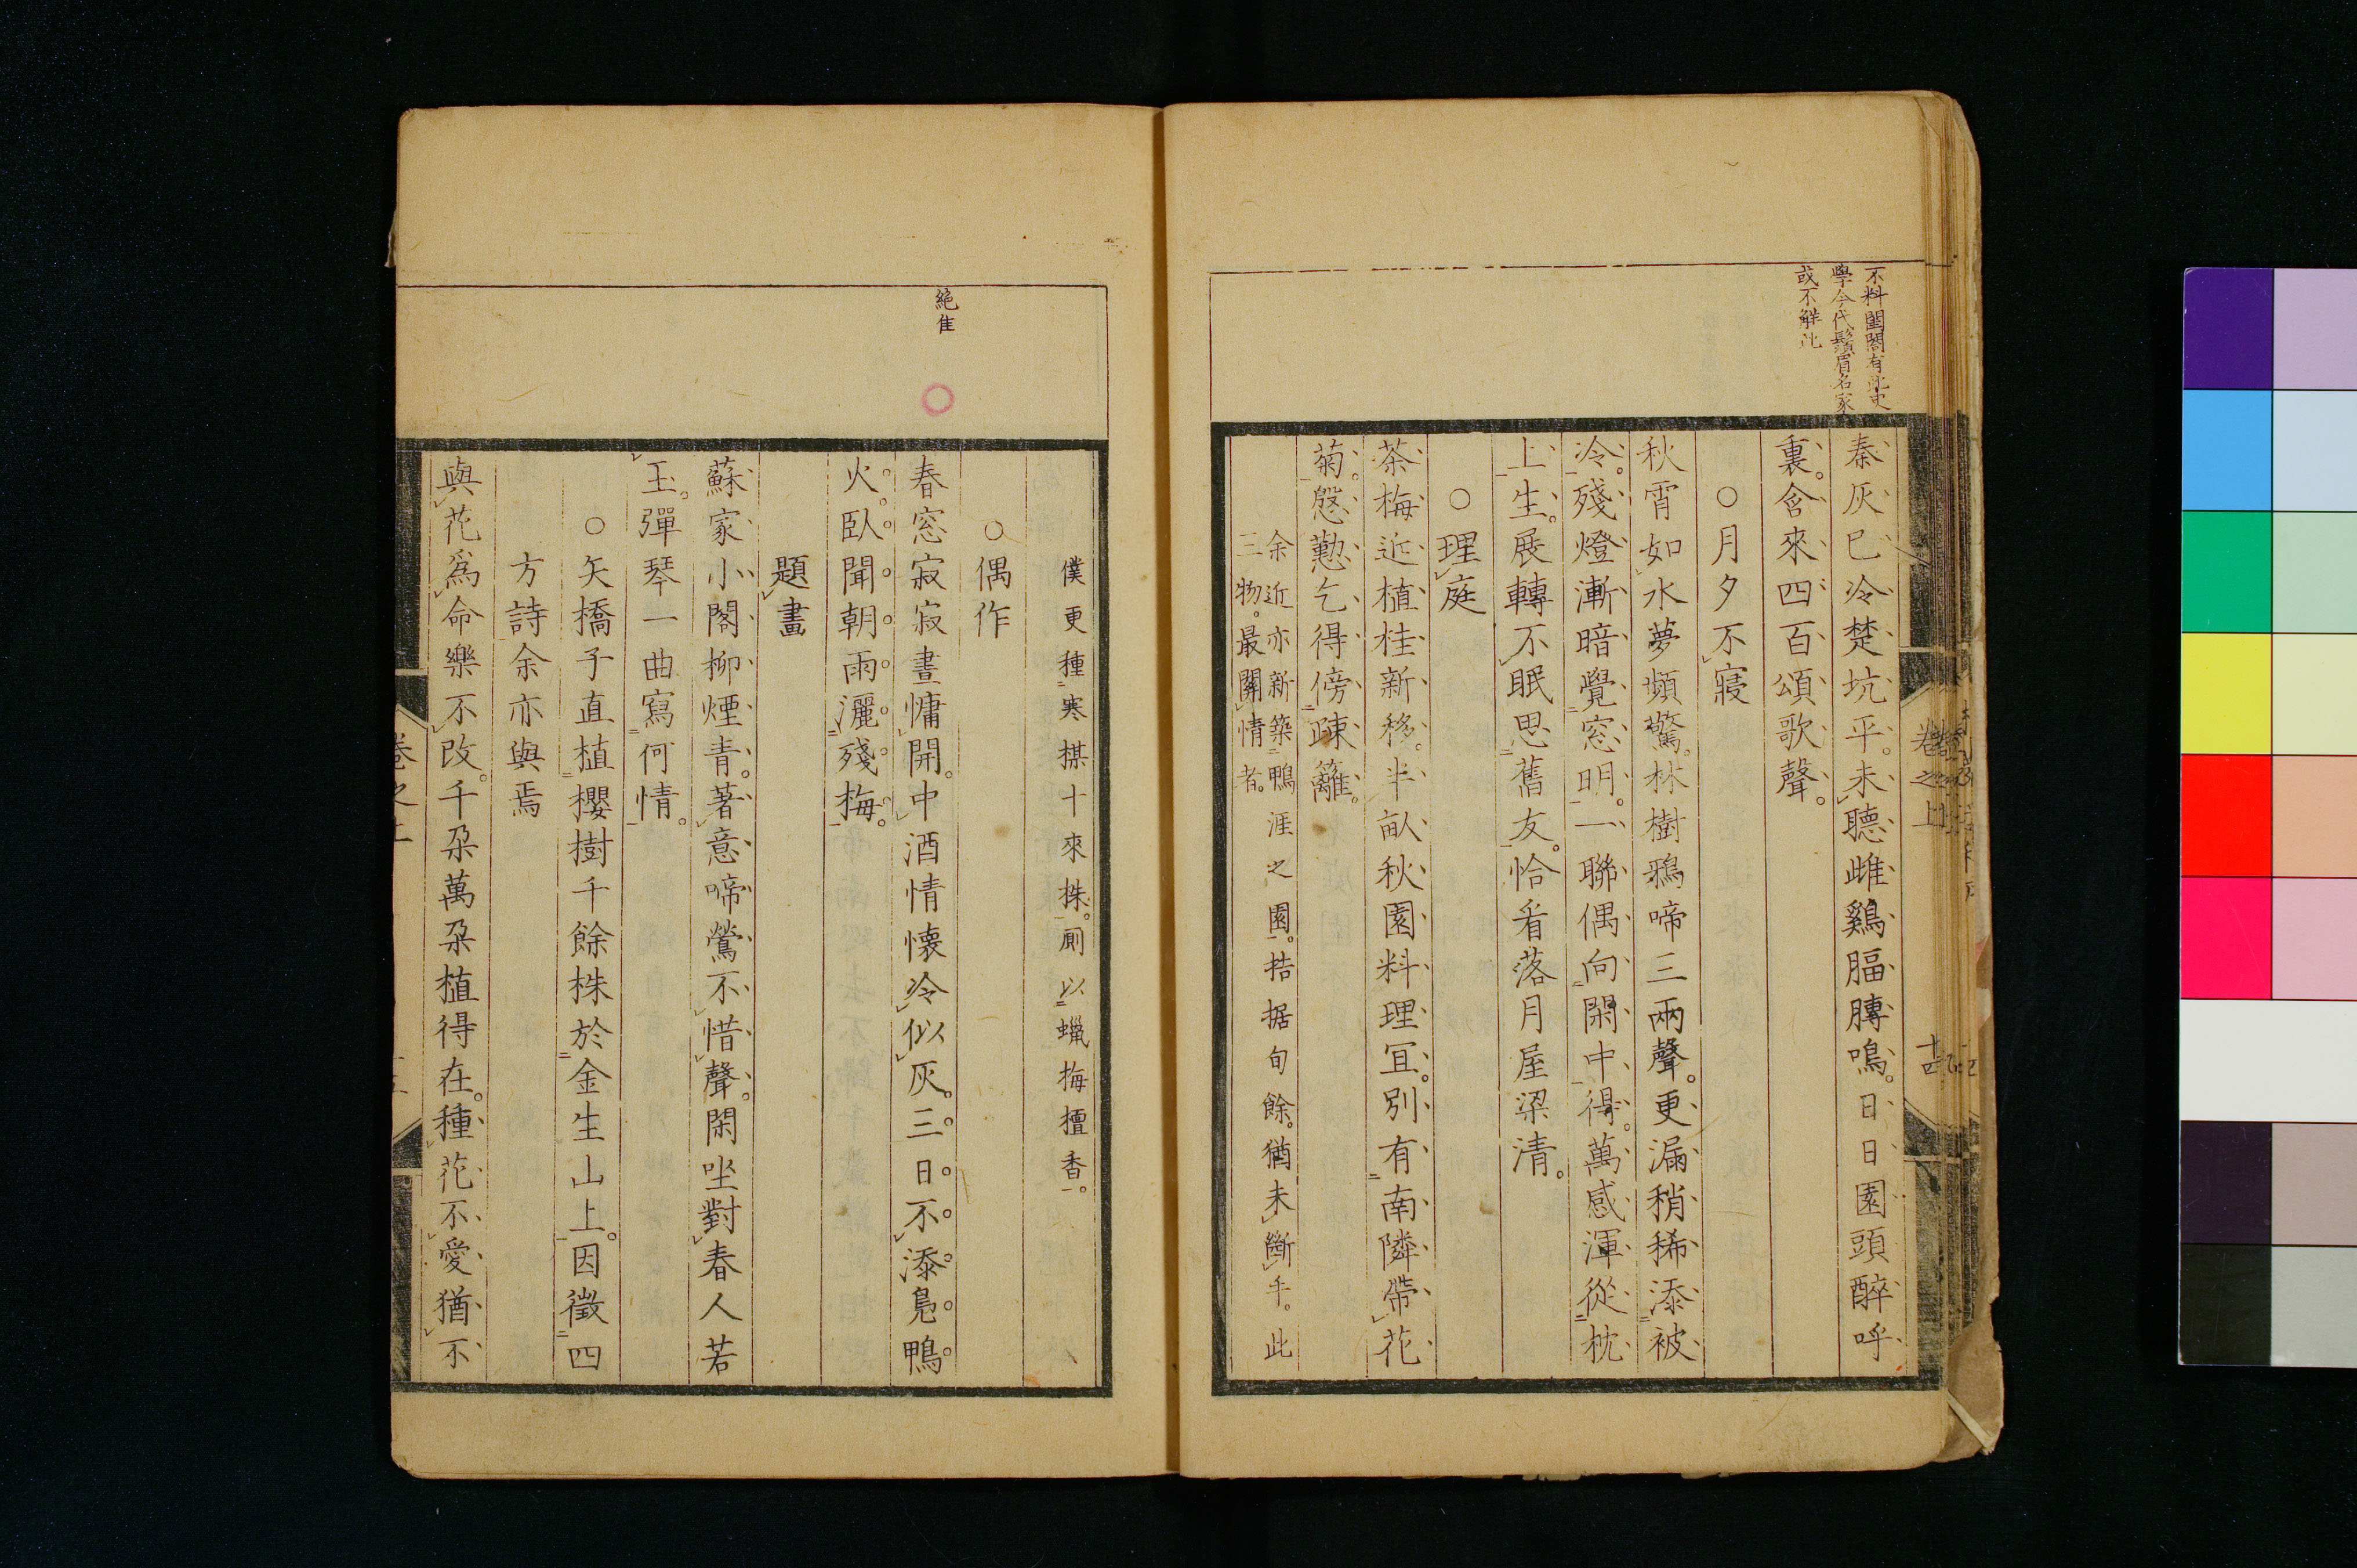 不料閨閤有此史
學今代鬚眉名家
或不解此
秦灰已冷楚坑平。未聽雌鷄腷膊鳴。日日園頭醉呼
裏。含來四百頌歌聲。
○月夕不寢
秋宵如水夢頻驚。林樹鴉啼三兩聲。更漏稍稀添被
冷。殘燈漸暗覺窓明。一聯偶向閑中得。萬感渾從枕
上生。展轉不眠思舊友。恰看落月屋梁清。
○理庭
茶梅近植桂新移。半畝秋園料理宜。別有南隣帶花
菊。慇懃乞得傍疎籬。
余近亦新築鴨涯之園。拮据旬餘。猶未斷手。此
三物。最關情者。
卷之上
十四
僕更種寒棋十來株。厠以蠟梅檀香。
○偶作
絕隹
春窓寂寂晝慵開。中酒情懷冷似灰。三日不添鳧鴨
火。臥聞朝雨灑殘梅。
題畫
蘇家小閣柳煙青。著意啼鶯不惜聲。閑坐對春人若
玉。彈琴一曲寫何情。
○矢橋子直植櫻樹千餘株於金生山上。因徵四
方詩余亦與焉
與花爲命樂不改。千朶萬朶植得在。種花不愛猶不
卷之上